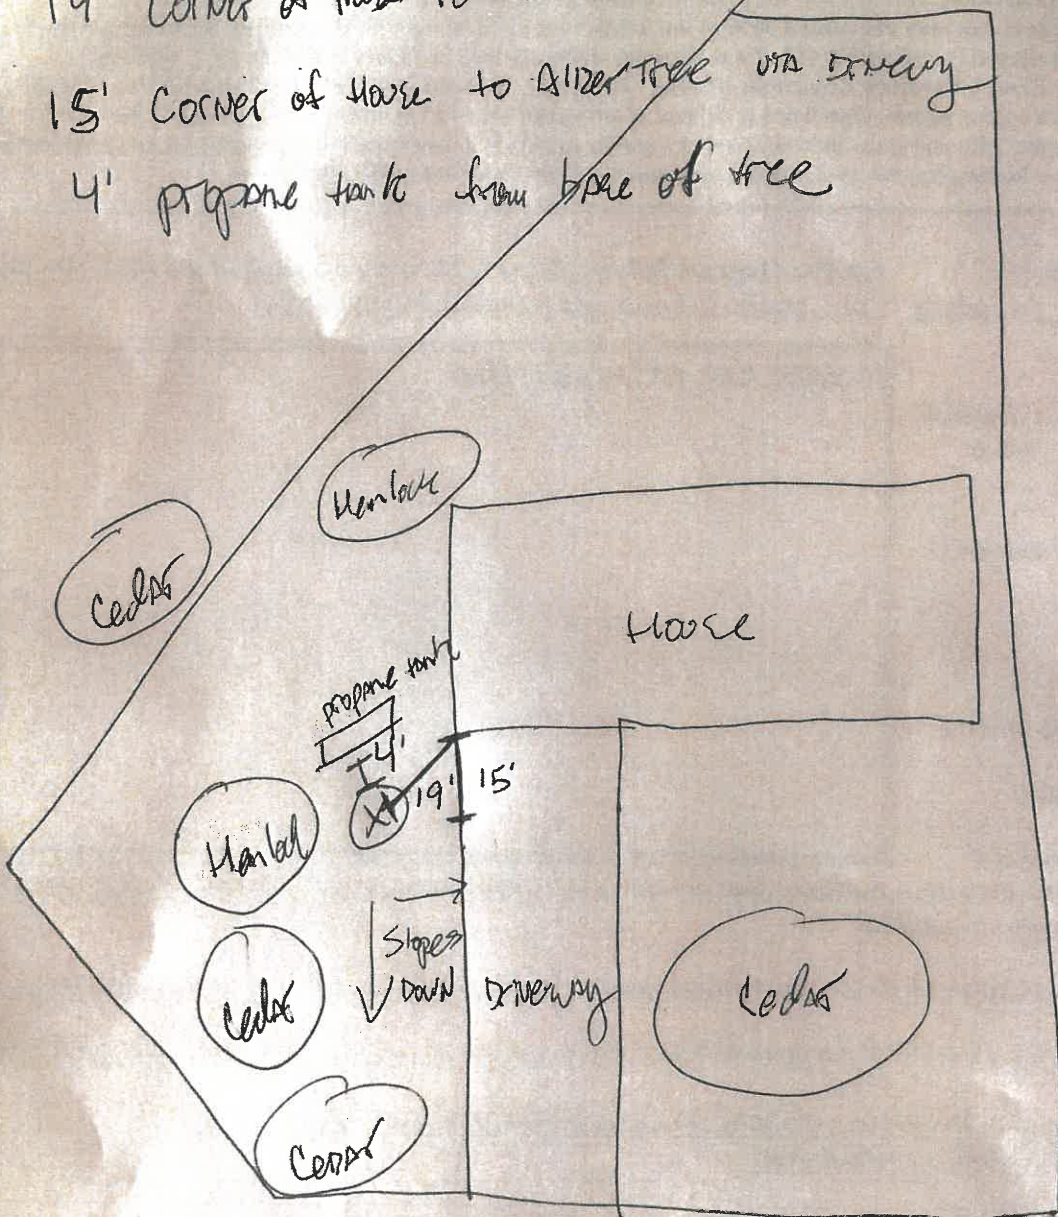 19 Corner of House to
15' Corner of House to Alder Tree via Driveway
4' propane tank from base of tree
Hemlock
Cedar
House
propane tank
4'
19' 15'
X
Hemlock
Slopes
Down
Driveway
Cedar
Cedar
Cedar